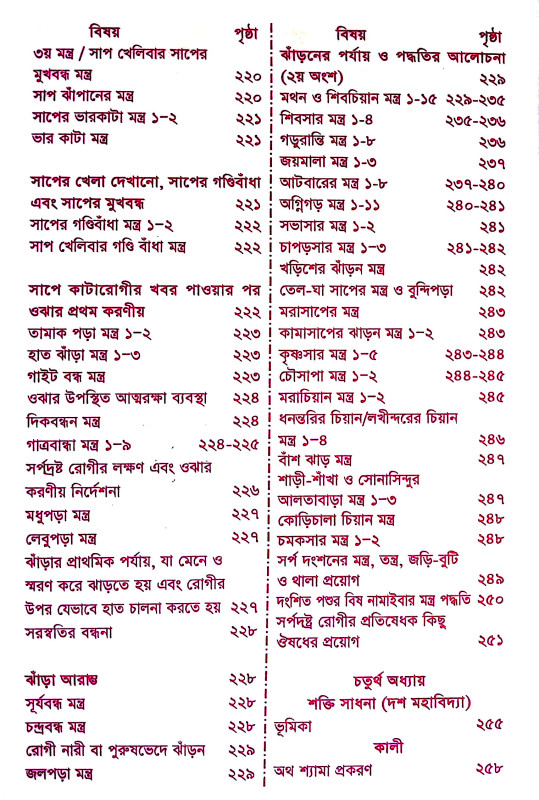 বিষয় পৃষ্ঠা
৩য় মন্ত্র / সাপ খেলিবার সাপের
মুখবন্ধ মন্ত্র ২২০
সাপ ঝাঁপানের মন্ত্র ২২০
সাপের ভারকাটা মন্ত্র ১-২ ২২১
ভার কাটা মন্ত্র ২২১
সাপের খেলা দেখানো, সাপের গণ্ডিবাঁধা
এবং সাপের মুখবন্ধ ২২১
সাপের গণ্ডিবাঁধা মন্ত্র ১-২ ২২২
সাপ খেলিবার গণ্ডি বাঁধা মন্ত্র ২২২
সাপে কাটারোগীর খবর পাওয়ার পর
ওঝার প্রথম করণীয় ২২২
তামাক পড়া মন্ত্র ১-২ ২২৩
হাত ঝাঁড়া মন্ত্র ১-৩ ২২৩
গাইট বন্ধ মন্ত্র ২২৩
ওঝার উপস্থিত আত্মরক্ষা ব্যবস্থা ২২৪
দিকবন্ধন মন্ত্র ২২৪
গাত্রবান্ধা মন্ত্র ১-৯ ২২৪-২২৫
সর্পদ্রষ্ট রোগীর লক্ষণ এবং ওঝার
করণীয় নির্দেশনা ২২৬
মধুপড়া মন্ত্র ২২৭
লেবুপড়া মন্ত্র ২২৭
ঝাঁড়ার প্রাথমিক পর্যায়, যা মেনে ও
স্মরণ করে ঝাড়তে হয় এবং রোগীর
উপর যেভাবে হাত চালনা করতে হয় ২২৭
সরস্বতির বন্ধনা ২২৮
ঝাঁড়া আরাম্ভ ২২৮
সূর্যবন্ধ মন্ত্র ২২৮
চন্দ্রবন্ধ মন্ত্র ২২৮
রোগী নারী বা পুরুষভেদে ঝাঁড়ন ২২৯
জলপড়া মন্ত্র ২২৯
বিষয় পৃষ্ঠা
ঝাঁড়নের পর্যায় ও পদ্ধতির আলোচনা
(২য় অংশ) ২২৯
মথন ও শিবচিয়ান মন্ত্র ১-১৫ ২২৯-২৩৫
শিবসার মন্ত্র ১-৪ ২৩৫-২৩৬
গড়ুরাস্তি মন্ত্র ১-৮ ২৩৬
জয়মালা মন্ত্র ১-৩ ২৩৭
আটবারের মন্ত্র ১-৮ ২৩৭-২৪০
অগ্নিগড় মন্ত্র ১-১১ ২৪০-২৪১
সভাসার মন্ত্র ১-২ ২৪১
চাপড়সার মন্ত্র ১-৩ ২৪১-২৪২
খড়িশের ঝাঁড়ন মন্ত্র ২৪২
তেল-ঘা সাপের মন্ত্র ও বুন্দিপড়া ২৪২
মরাসাপের মন্ত্র ২৪৩
কামাসাপের ঝাড়ন মন্ত্র ১-২ ২৪৩
কৃষ্ণসার মন্ত্র ১-৫ ২৪৩-২৪৪
চৌসাপা মন্ত্র ১-২ ২৪৪-২৪৫
মরাচিয়ান মন্ত্র ১-২ ২৪৫
ধনন্তরির চিয়ান/লখীন্দরের চিয়ান
মন্ত্র ১-৪ ২৪৬
বাঁশ ঝাড় মন্ত্র ২৪৭
শাড়ী-শাঁখা ও সোনাসিন্দুর
আলতাবাড়া মন্ত্র ১-৩ ২৪৭
কোড়িচালা চিয়ান মন্ত্র ২৪৮
চমকসার মন্ত্র ১-২ ২৪৮
সর্প দংশনের মন্ত্র, তন্ত্র, জড়ি-বুটি
ও থালা প্রয়োগ ২৪৯
দংশিত পশুর বিষ নামাইবার মন্ত্র পদ্ধতি ২৫০
সর্পদষ্ট্র রোগীর প্রতিষেধক কিছু
ঔষধের প্রয়োগ ২৫১
চতুর্থ অধ্যায়
শক্তি সাধনা (দশ মহাবিদ্যা)
ভূমিকা ২৫৫
কালী
অথ শ্যামা প্রকরণ ২৫৮